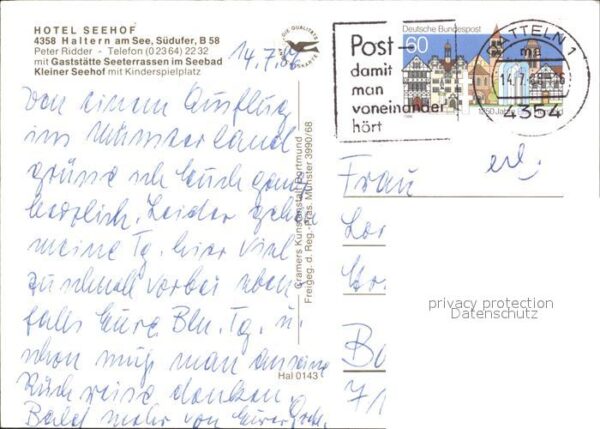 HOTEL SEEHOF
4358 Haltern am See, Südufer, B 58
Peter Ridder - Telefon (02364) 2232
mit Gaststätte Seeterrassen im Seebad
Kleiner Seehof mit Kinderspielplatz
DIE QUALITÄTS KARTE
14.7.86
Von einem Ausflug
ins Münsterland
grüße ich Euch ganz
herzlich. Leider gehen
meine Tg. hier viel
zu schnell vorbei eben-
falls Eure Bln. Tg. u.
schon muß man an seine
Rückreise denken.
Bald mehr von Eurer
Cramers Kunstanstalt Dortmund
Freigeg. d. Reg.-Präs. Münster 3990/68
Hal 0143
Post-
damit
man
voneinander
hört
Deutsche Bundespost
60
DATTELN 1
14.7.
4354
erl.
Frau
privacy protection
Datenschutz